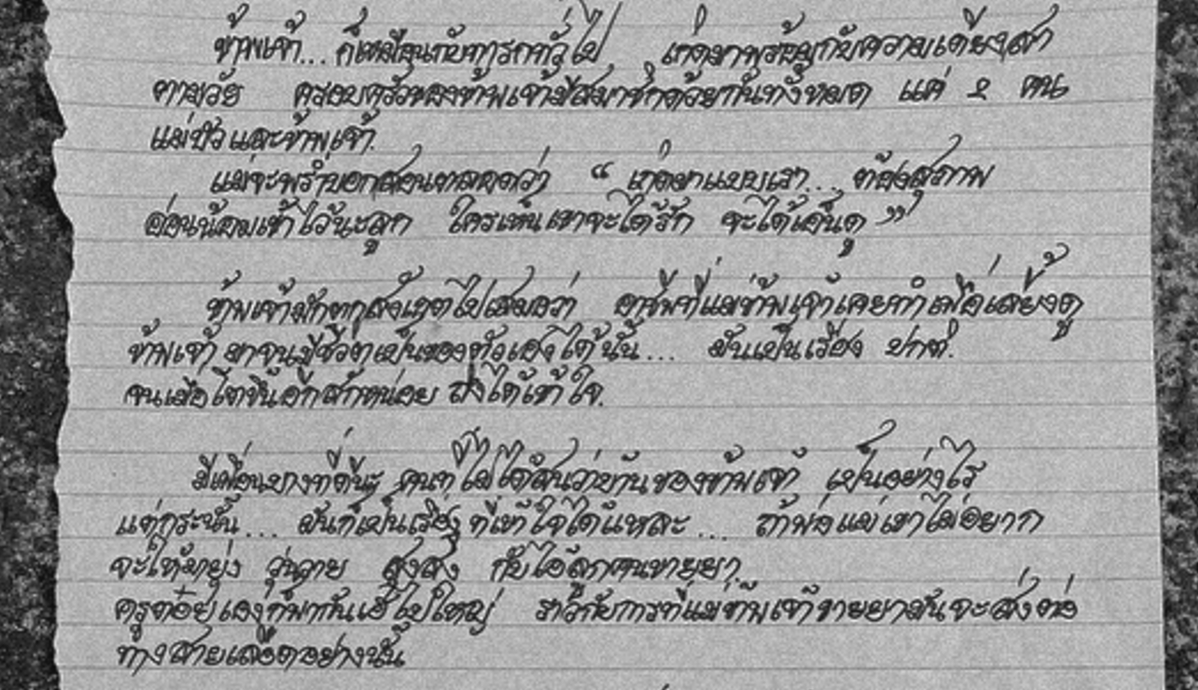 ข้าพเจ้า... ก็เหมือนกับทารกทั่วไป เกิดมาพร้อมกับความเดียงสา
ตามวัย ครอบครัวของข้าพเจ้ามีสมาชิกด้วยกันทั้งหมด แค่ ๒ คน
แม่บัวและข้าพเจ้า.
แม่จะพร่ำบอกสอนตลอดว่า “ เกิดมาแบบเรา... ต้องสุภาพ
อ่อนน้อมเข้าไว้นะลูก ใครเห็นเขาจะได้รัก จะได้เอ็นดู ”
ข้าพเจ้ามักตกสังเกตไปเสมอว่า อาชีพที่แม่ข้าพเจ้าเคยทำเพื่อเลี้ยงดู
ข้าพเจ้า มาจนมีชีวิตเป็นของตัวเองได้นั้น... มันเป็นเรื่อง ปกติ.
จนเมื่อโตขึ้นอีกสักหน่อย ถึงได้เข้าใจ.
มีเพื่อนบางที่ดีนะ คนที่ไม่ได้สนว่าบ้านของข้าพเจ้า เป็นอย่างไร
แต่กระนั้น... มันก็เป็นเรื่อง ที่เข้าใจได้แหละ... ถ้าพ่อแม่เขาไม่อยาก
จะให้มายุ่ง วุ่นวาย สุงสิง กับไอ้ลูกคนขายยา.
ครูต๋อยเองก็พากันเฮไปใหญ่ ราวกับการที่แม่ข้าพเจ้าขายยามันจะส่งต่อ
ทางสายเลือดอย่างนั้น